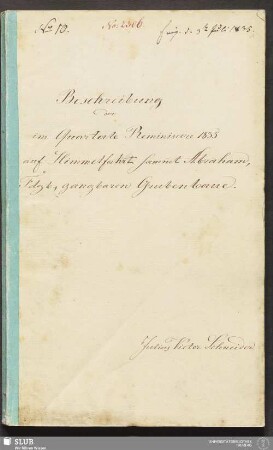 No. 10.
No. 2306
Beschreibung
der
im Quartale Reminiscere 1835
auf Himmelfahrt sammt Abraham
Fdgb. gangbaren Grubenbaue.
Julius Victor Schneider
SLUB
Wir führen Wissen.